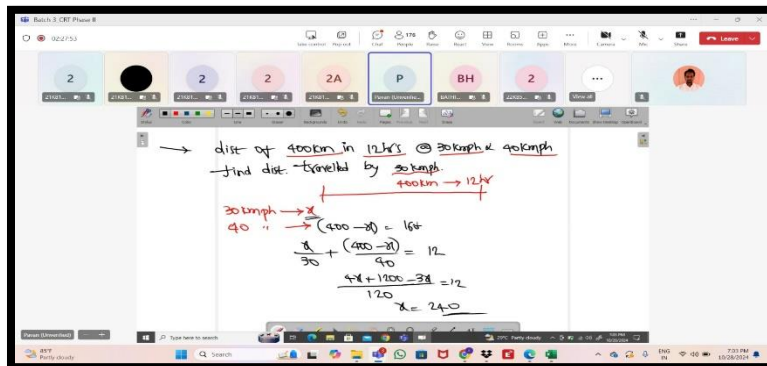 Batch 3_CRT Phase II
02:27:53
Take control
Pop out
Chat
176
People
Raise
React
View
Rooms
Apps
More
Camera
Mic
Share
Leave
2
2
2
2A
P
BH
2
...
View all
→ dist of 400km in 12hr's @ 30kmph & 40kmph
find dist. travelled by 30kmph.
400km → 12hr
30kmph → x
40 " → (400-x) = 160
x/30 + (400-x)/40 = 12
4x+1200-3x/120 = 12
x = 240
Pavan (Unverified)
Type here to search
29°C Partly cloudy
85°F
Partly cloudy
Search
ENG
IN
7:31 PM
10/28/2024